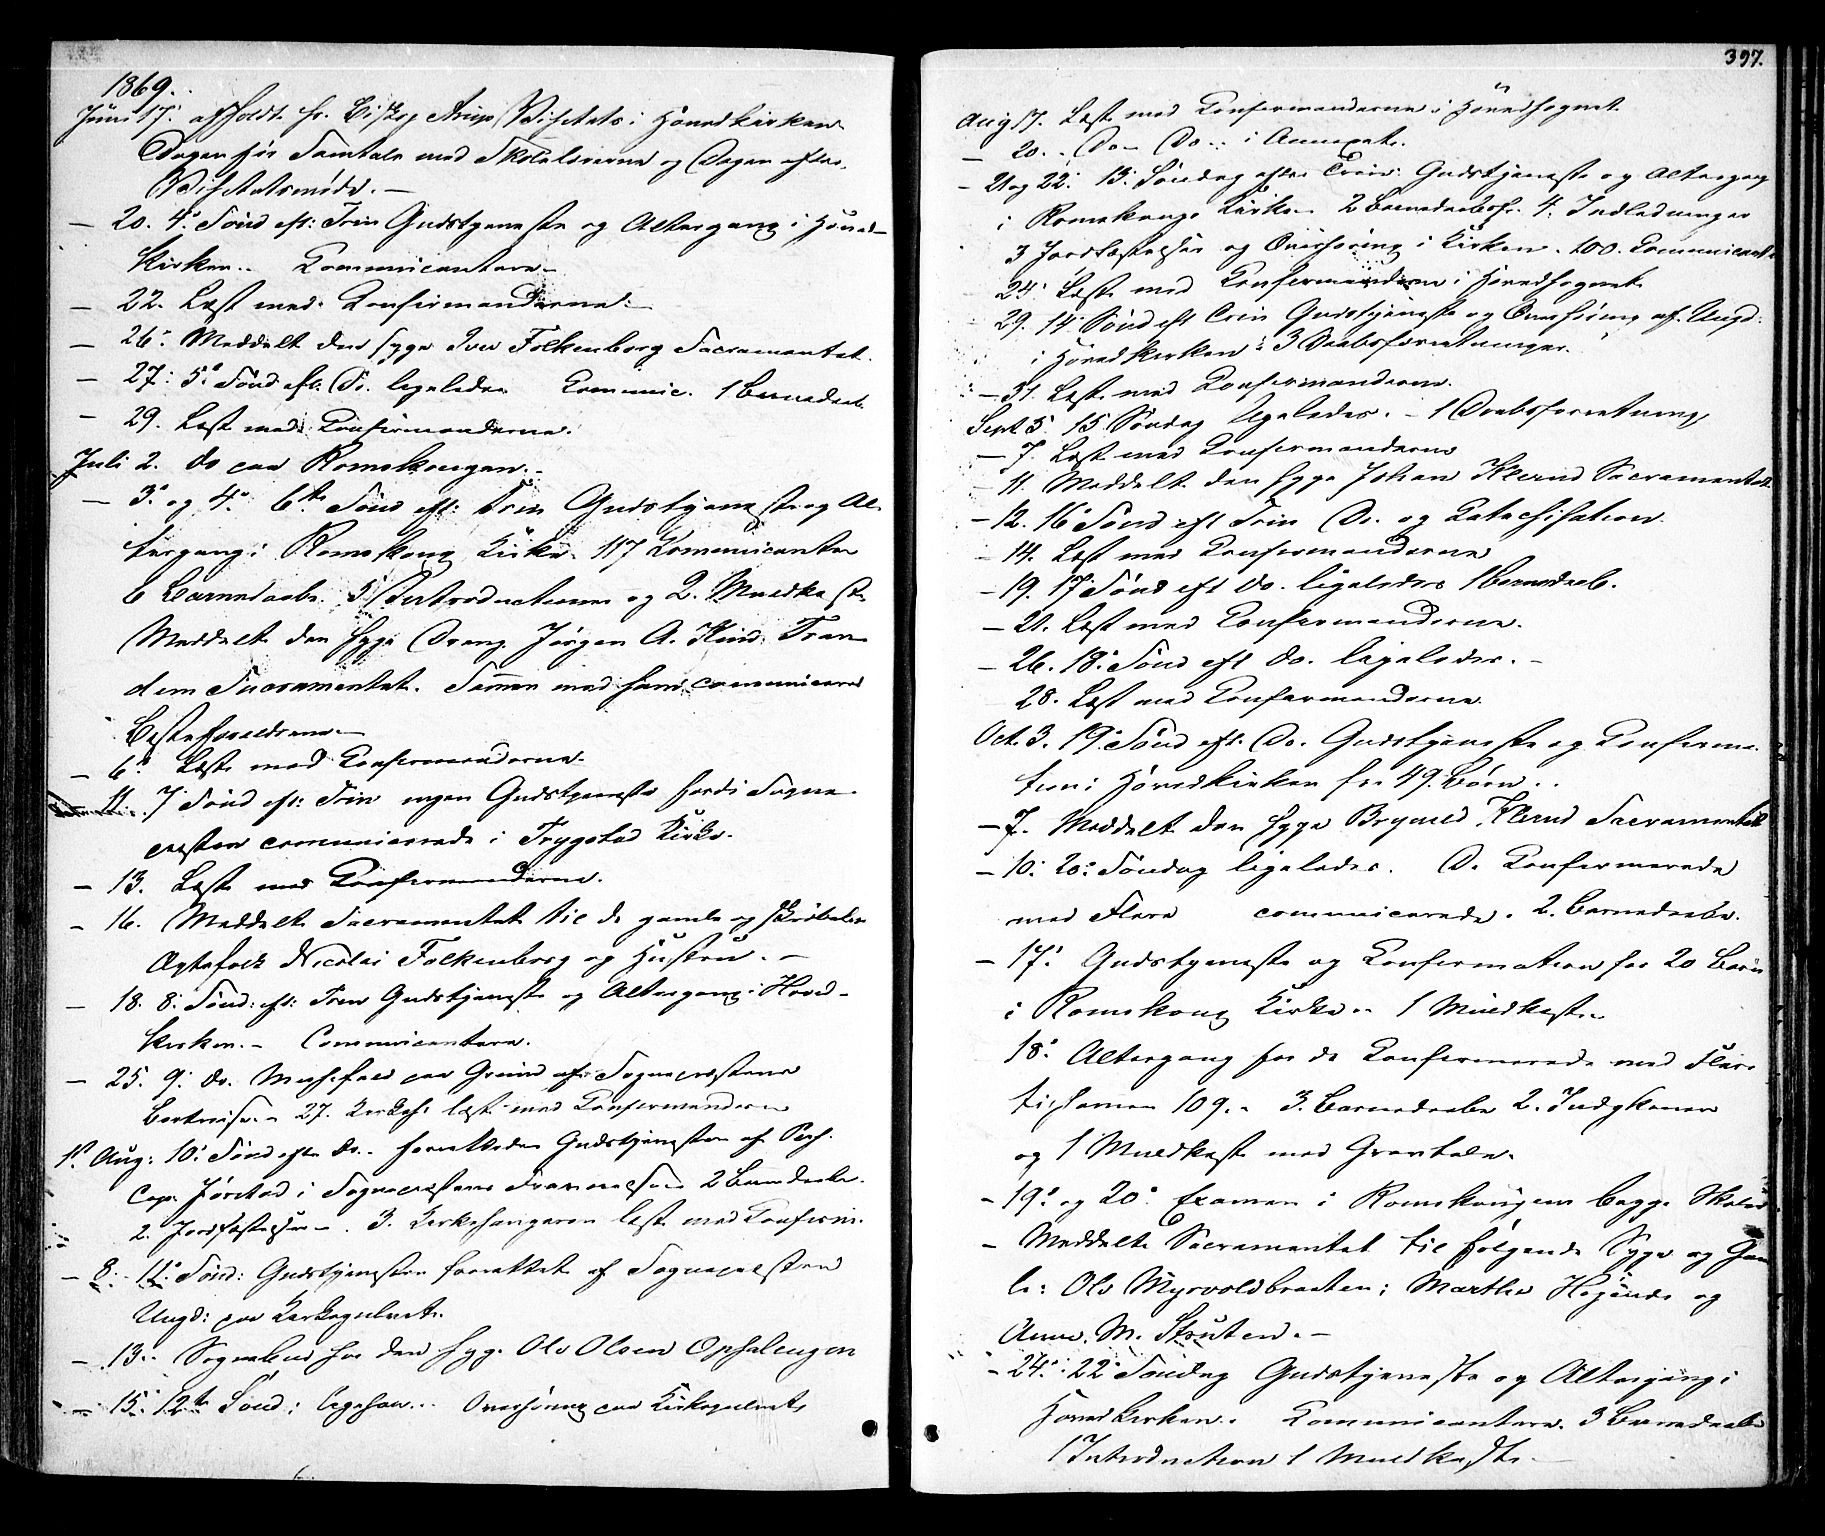 1869.
Juni 17. afholdt hr. Biskop Arup Visitats i Hovedkirken
Dagen før Samtale med Skolelærerne og Dagen efter
Visitatsmøde. —
— 20. 4. Sønd eft: Trin Gudstjeneste og Altergang i Hoved-
kirken.. Communicantere
— 22. Læst med Confirmanderne. —
— 26. Meddelt den syge Iver Folkenborg Sacramentet.
— 27. 5. Sønd eft. Do. ligeledes Commnic. 1 Barnedaab
— 29. Læst med Confirmanderne.
Juli 2. do paa Romskougen.
— 3. og 4. 6te Sønd eft: Trin Gudstjeneste og Al-
tergang i Romskoug Kirke 117 Communicanter
6 Barnedaabe 5 Introductioner og 2. Muldkaste
Meddelt den syge Dreng Jørgen A. Kind. Tran
dem Sacramentet. Sammen med ham communicered
Besteforældrene —
— 6. Læst med Confirmanderne.
— 11. 7 Sønd eft: Trin ingen Gudstjeneste fordi Sogne-
præsten communicerede i Trygstad Kirke.
— 13. Læst med Confirmanderne.
— 16. Meddelt Sacramentet til de gamle og skrøbelige
Ægtefolk Nicolai Folkenborg og Hustru. —
— 18. 8. Sønd: eft: Trin Gudstjeneste og Altergang i Hoved-
kirken. — Communicantere.
— 25. 9. do. Messefald paa Grund af Sognepræstens
Bortreise. — 27. læst med Confirmanderne
1. Aug: 10. Sønd efter do. forrettedes Gudstjenesten af Pers.
Cap. Jørstad i Sognepræstens Fraværelse 2 Barnedaabe.
2. Jordfæstelser — . 3. Kirkesangeren læst med Confirm.
— 8. 11. Sønd: Gudstjenesten forrettet af Sognepræsten
Ungd: paa Kirkegulvet.
— 13. Sognebud hos den syge Ole Olsen Opsalengen
— 15. 12te Sønd: ligesaa... Overhøring paa Kirkegulvet
397.
Aug 17. Læst med Confirmanderne i Hovedsognet
— 20. Do — Do.. i Annexet.
— 21 og 22. 13. Søndag efter Trin. Gudstjeneste og Altergang
i Romskougs Kirke. 2 Barnedaabe. 4. Indledninger
3 Jordfæstelser og Overhøring i Kirken. 100. Communicant
24. Læst med Confirmanderne i Hovedsognet
29. 14 Sønd eft Trin Gudstjeneste og Overhøring af Ungd:
i Hovedkirken 3 Daabsforretninger.
— 31. Læst med Confirmanderne.
Sept 5. 15 Søndag ligeledes. — 1 Daabsforretning
— 7. Læst med Confirmanderne
— 11. Meddelt den syge Johan Klerud Sacramentet
— 12. 16 Sønd eft Trin Do. og Catechisation.
— 14. Læst med Confirmanderne
— 19. 17 Sønd eft do. ligeledes 1 barnedaab.
— 21. Læst med Confirmanderne.
— 26. 18. Sønd eft do. ligeledes. —
28. Læst med Confirmanderne.
Oct. 3. 19. Sønd eft. Do. Gudstjeneste og Confirma-
tion i Hovedkirken for 49. Børn..
— 7. Meddelt den syge Brynild Klerud Sacramentet
— 10. 20. Søndag ligeledes. De Confirmerede
med Flere communicerede. 2. Barnedaabe.
— 17. Gudstjeneste og Confirmation for 20 Børn
i Romskoug Kirke.. 1 Muldkaste
18. Altergang for de Confirmerede med Flere
tilsammen 109. — 3. Barnedaabe 2. Indgkoner
og 1 Muldkast med Gravtale.
— 19. og 20. Examen i Romskougens begge Skoler
— Meddelt Sacramentet til følgende Syge og Gam
le: Ole Myrvoldbraaten; Marthe Høgende og
Anne. M. Struten. —
— 24. 22 Søndag Gudstjeneste og Altergang i
Hovedkirken. Communicantere. 3 Barnedaabe
1 Introduction 1 Muldkaste. —